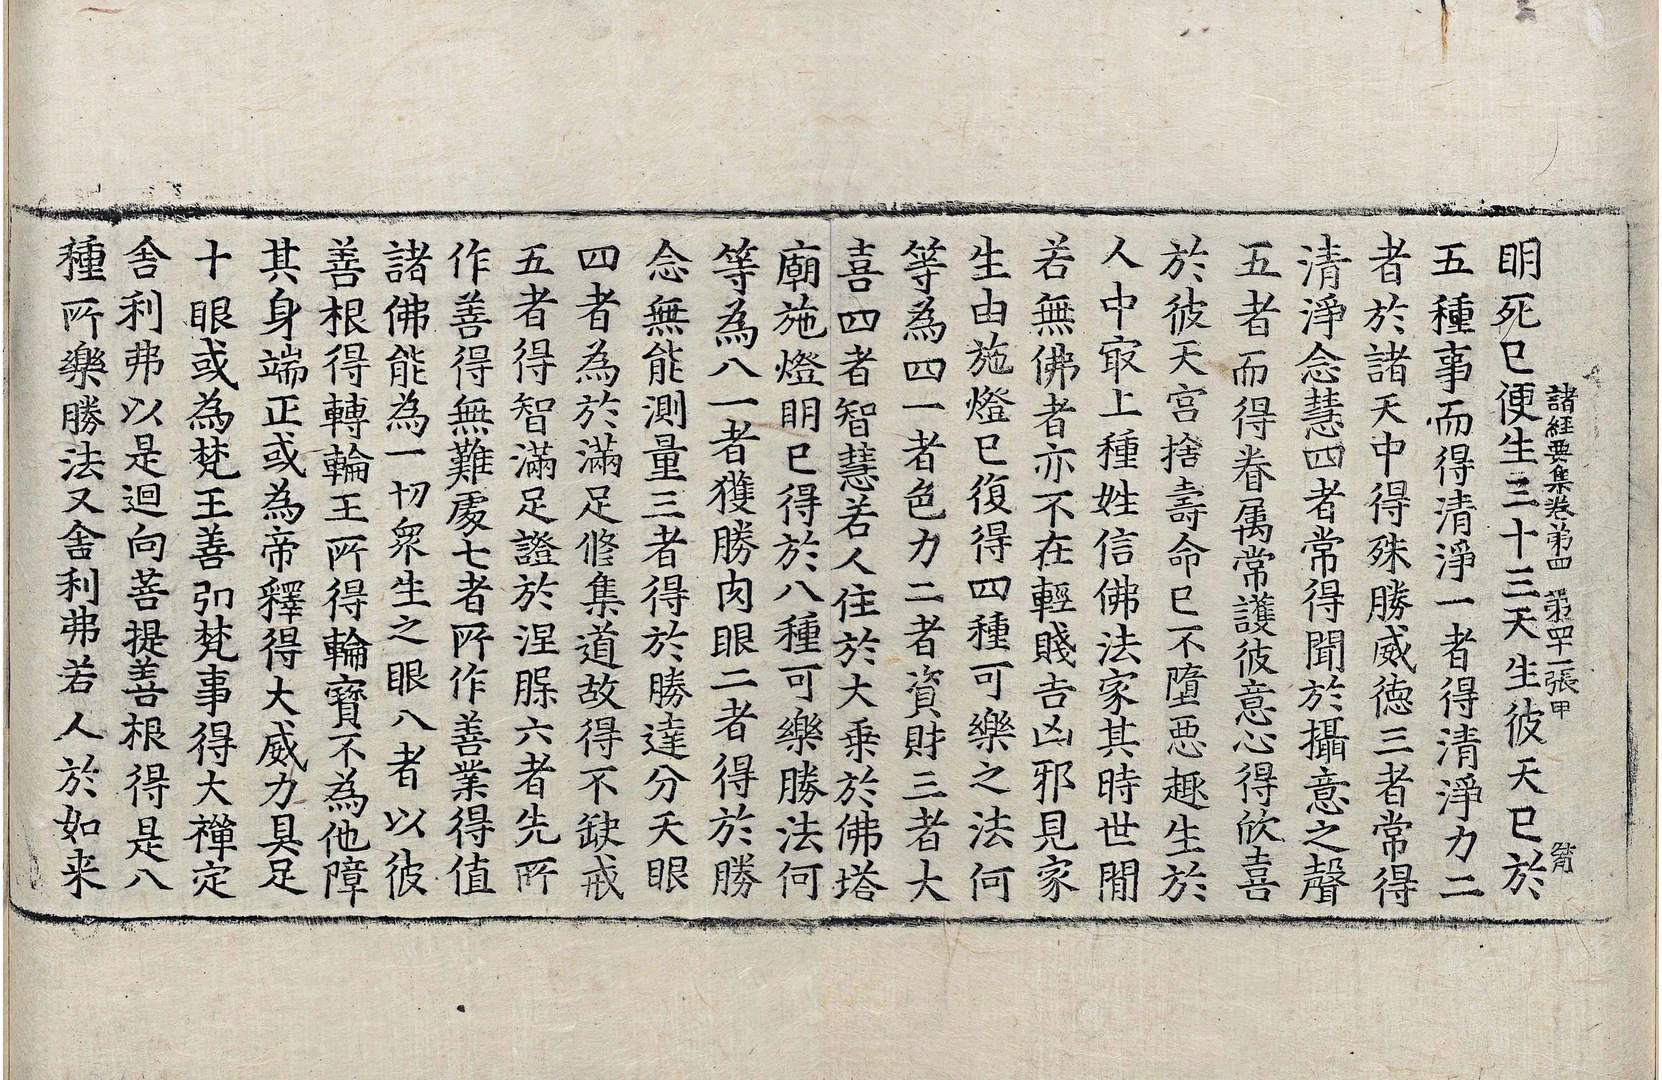 明死已便生三十三天生彼天已於
諸經要集卷第四　第四十一張　甲
五種事而得清淨一者得清淨力二
者於諸天中得殊勝威德三者常得
清淨念慧四者常得聞於攝意之聲
五者而得眷属常護彼意心得欣喜
於彼天宮捨壽命已不墮惡趣生於
人中㝡上種姓信佛法家其時世間
若無佛者亦不在輕賤吉凶邪見家
生由施燈已復得四種可樂之法何
等為四一者色力二者資財三者大
喜四者智慧若人住於大乗於佛塔
廟施燈明已得於八種可樂勝法何
等為八一者獲勝肉眼二者得於勝
念無能測量三者得於勝達分天眼
四者為於滿足修集道故得不缺戒
五者得智滿足證於涅槃六者先所
作善得無難處七者所作善業得值
諸佛能為一切衆生之眼八者以彼
善根得轉輪王所得輪寶不為他障
其身端正或為帝釋得大威力具足
十眼或為梵王善知梵事得大禪定
舍利弗以是迴向菩提善根得是八
種所樂勝法又舍利弗若人於如来